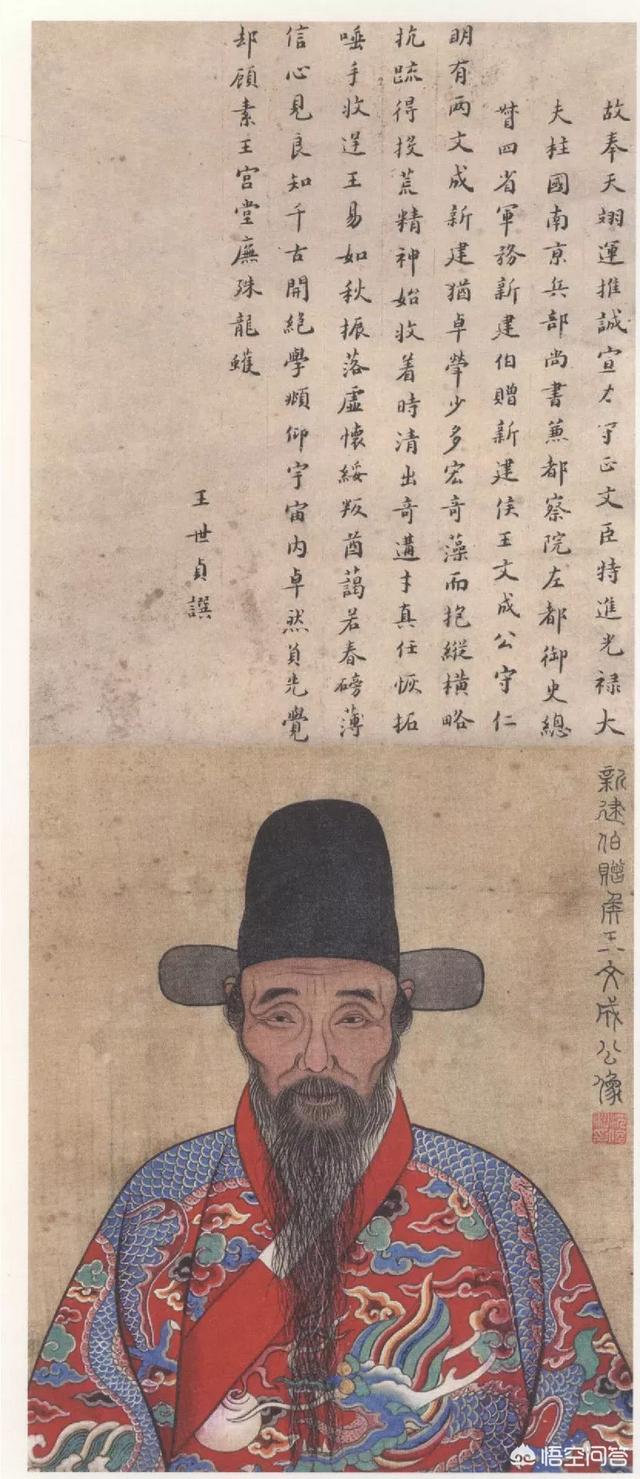 故奉天翊運推誠宣力守正文臣特進光禄大
夫柱國南京兵部尚書兼都察院左都御史總
督四省軍務新建伯贈新建侯王文成公守仁
明有两文成新建猶卓犖少多宏奇藻而抱縱横略
抗疏得投荒精神始收着時清出奇遘才真任恢拓
唾手收逆王易如秋振落虚懷綏叛酋藹若春磅薄
信心見良知千古開絕學頫仰宇宙内卓然負先覺
却顧素王宫堂廡殊龍蠖
王世貞譔
新建伯贈侯王文成公像
悟空问答